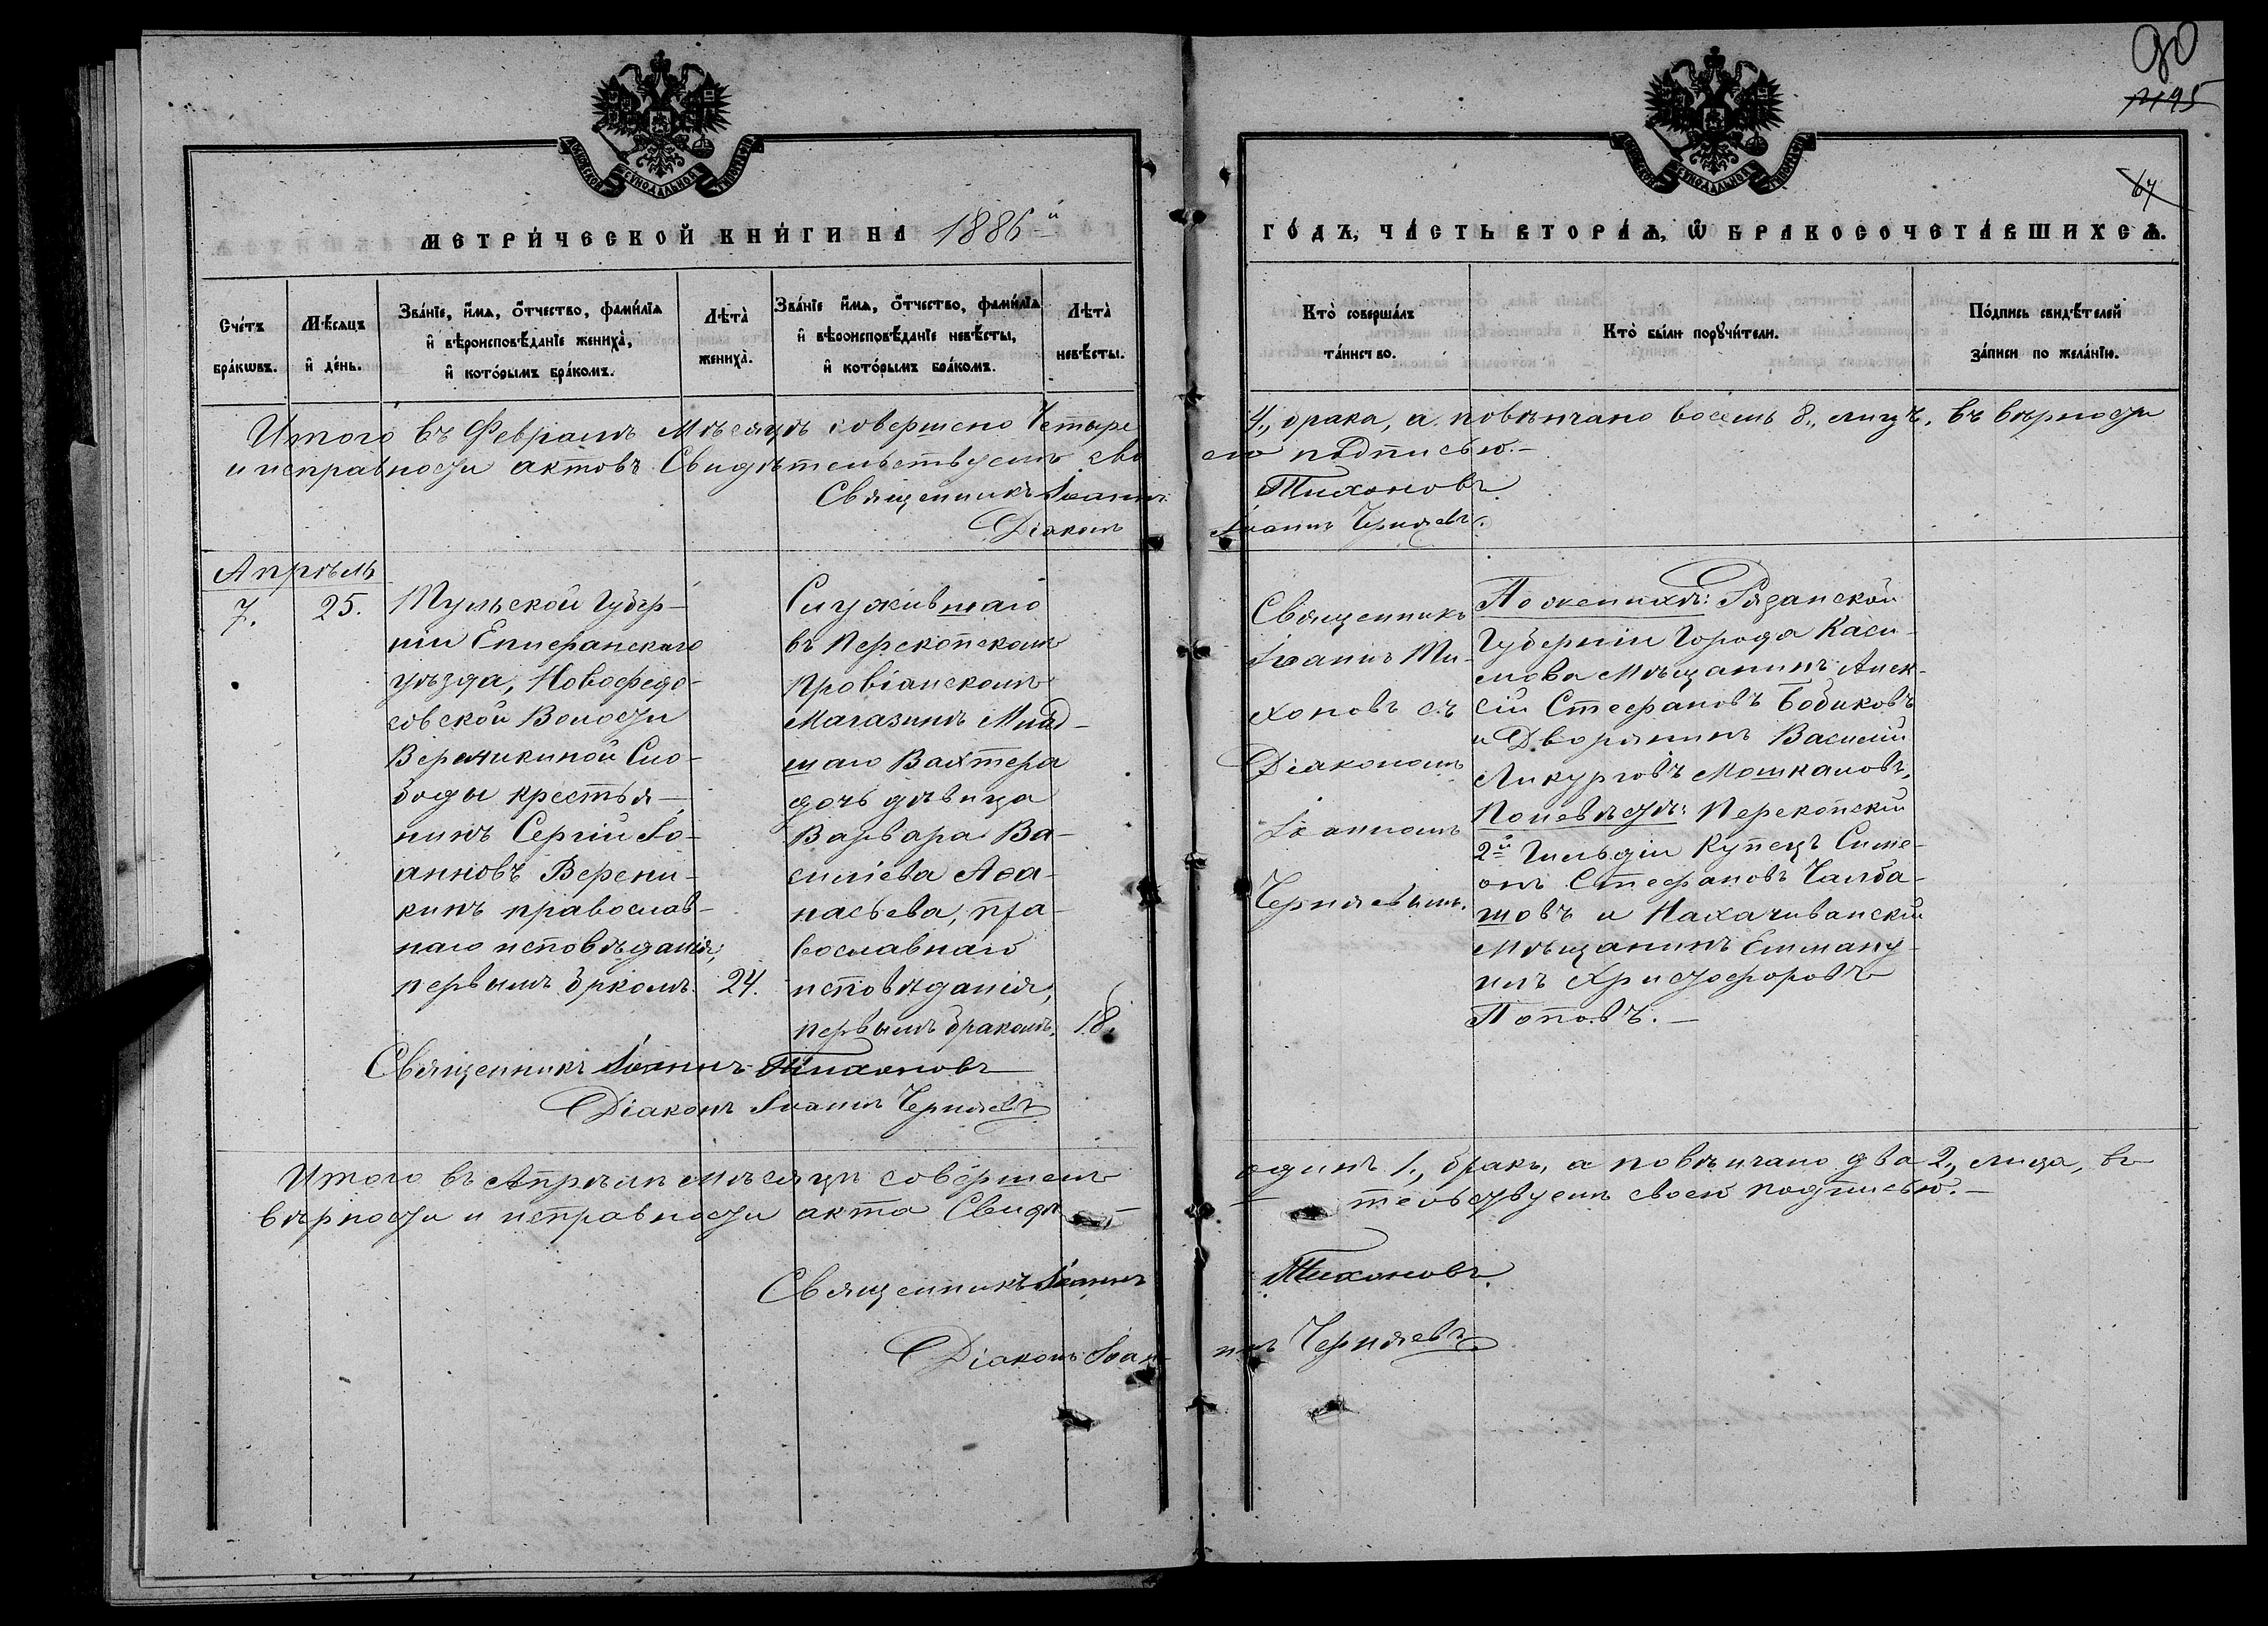 90
1195
67
МЕТРИ́ЧЕСКОЙ КНИ́ГИ НА 1886й
ГО́ДЪ, ЧА́СТЬ ВТОРА́Ѧ, Ѡ БРАКОСОЧЕТА́ВШИХСѦ.
Сче́тъ бра́кѡвъ.
Мѣ́сѧцъ и҆ де́нь.
Зва́нїе, и҆́мѧ, ѻ҆́тчество, фами́лїѧ
и҆ вѣроисповѣ́данїе жениха̀,
и҆ кото́рымъ бра́комъ.
Лѣта̀ жениха̀.
Зва́нїе и҆́мѧ, ѻ҆́тчество, фами́лїѧ
и҆ вѣроисповѣ́данїе невѣ́сты,
и҆ кото́рымъ бра́комъ.
Лѣта̀ невѣ́сты.
Кто̀ соверша́лъ
та́инство.
Кто̀ бы́ли порꙋчи́тели.
По́дпись свидѣ́телей
за́писи по жела́нїю.
Итого въ Февралѣ Мѣсяцѣ совершено Четыре 4., брака, а повѣнчано восемь 8., лицъ. въ вѣрности
и исправности актовъ Свидѣтельствуемъ сво ею подписью.—
Священникъ Іоаннъ Тихоновъ
Діаконъ Іоаннъ Черняевъ.
Апрѣль
7. 25.
Тульской Губер-
ніи Епифанскаго
уѣзда, Новофедо-
совской Волости
Вереникиной Сло-
боды крестья-
нинъ Сергій Іо-
анновъ Верени-
кинъ православ-
наго исповѣданія,
первымъ бркомъ. 24.
Служившаго
въ Перекопскомъ
Провіанскомъ
Магазинѣ Млад-
шаго Вахтера
дочь дѣвица
Варвара Ва-
силіева Аѳа-
насьева, пра-
вославнаго
исповѣданія,
первымъ бракомъ. 18.
Священникъ
Іоаннъ Ти-
хоновъ съ
Діакономъ
Іоанномъ
Черняевымъ.
По женихѣ: Рязанской
Губерніи Города Каси-
мова Мѣщанинъ Алек-
сій Стефановъ Бобиковъ
и Дворянинъ Василій
Ликурговъ Мошкаловъ,
По невѣстѣ: Перекопскій
2й Гильдіи Купецъ Симе-
онъ Стефановъ Чалба-
шовъ и Нахачиванскій
Мѣщанинъ Емману-
илъ Христофоровъ
Поповъ.—
Священникъ Іоаннъ Тихоновъ
Діаконъ Іоаннъ Черняевъ
Итого въ Апрѣлѣ Мѣсяцѣ совершенъ одинъ 1., бракъ, а повѣнчано два 2., лица, въ
вѣрности и исправности акта Свидѣ- тельствуемъ своею подписью.—
Священникъ Іоаннъ Тихоновъ.
Діаконъ Іоан- нъ Черняевъ